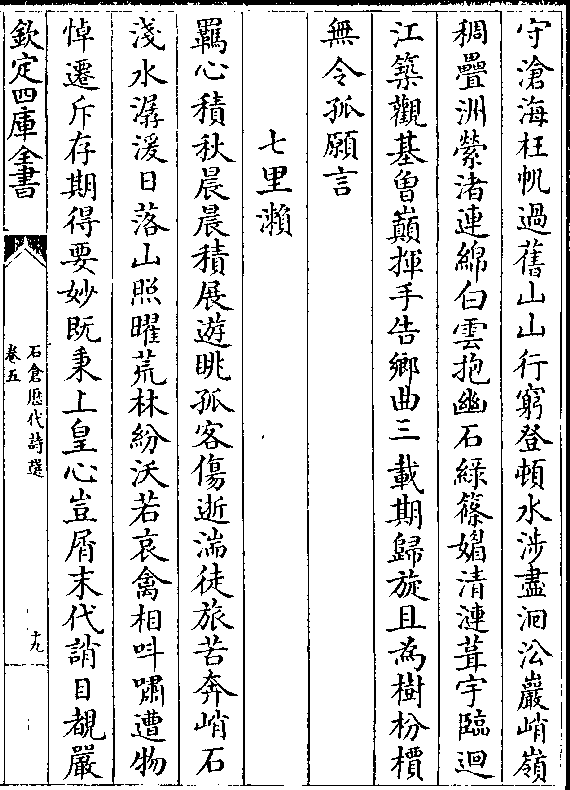 守滄海枉帆過舊山山行窮登頓水涉盡洄㳂巖峭嶺
稠疊洲縈渚連綿白雲抱幽石綠篠媚清漣葺宇臨迴
江築觀基曾巔揮手告鄉曲三載期歸旋且為樹枌檟
無令孤願言
七里瀨
羈心積秋晨晨積展遊眺孤客傷逝湍徒旅苦奔峭石
淺水潺湲日落山照曜荒林紛沃若哀禽相呌嘯遭物
悼遷斥存期得要妙既秉上皇心豈屑末代誚目覩嚴
欽定四庫全書
石倉歷代詩選
卷五
十九